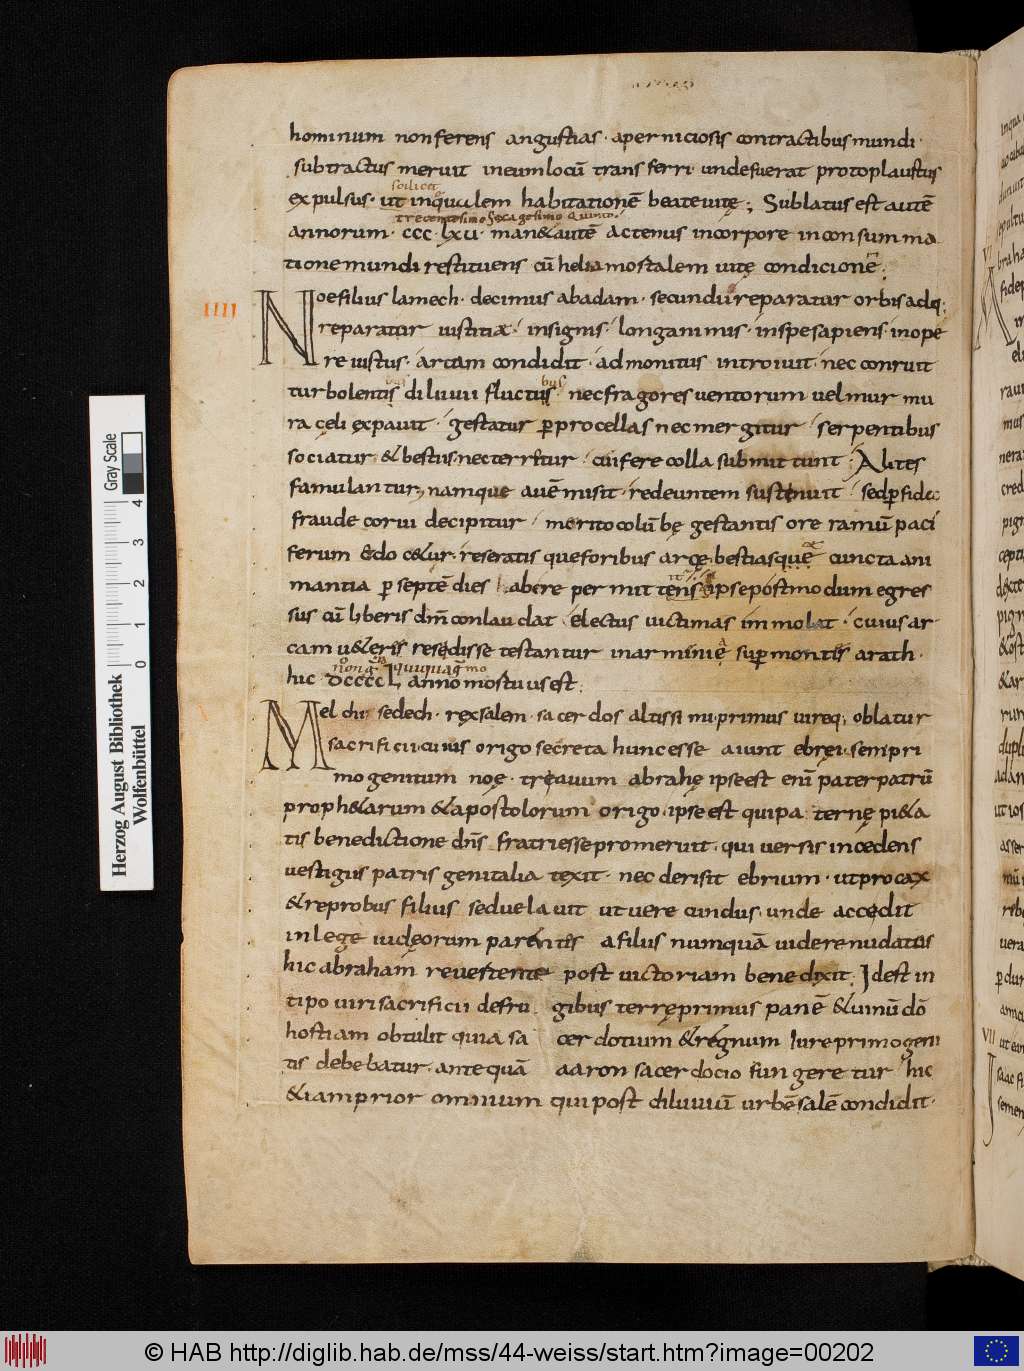 hominum non ferens angustias · aperniciosis contractibus mundi ·
subtractus meruit in eum locū transferri · unde fuerat protoplaustus
scilicet
expulsus · ut in qualem habitationē beate vitę ; Sublatus est autē
trecentesimo sexagesimo quinto
annorum · ccc · lxu · man& autē actenus in corpore in consumma
tione mundi restituens cū helia mostalem vitę condicionē ;
IIII
Noe filius lamech · decimus ab adam · secundū reparatur orbis adq;
reparatur iustitiæ · insignis · longanimus · in spe sapiens · in ope
re iustus · arcam condidit · admonitus introivit · nec conruit
turbolentis diluuii fluctus · nec fragores ventorum vel murmu
bus
ra cęli expauit · gestatur ꝑ procellas nec mergitur · serpentibus
sociatur & bestiis nec terretur · cui fere colla submittunt · Alites
famulantur · namque auē misit · redeuntem sustenuit · sed ꝑ fide
fraude corui decipitur · merito colūbę gestantis ore ramū paci
ferum & do c&ur · reseratis que foribus arcę · bestias quę cuncta ani
mantia ꝑ septē dies habere permittens · ipse postmodum egres
sus cū liberis dm̄ conlaudat · electus uictimas immolat · cuius ar
cam u&eris resedisse testantur in arminię suꝑ montis arath ·
nongē quinquagmo
hic DCCCCL anno mostuus est ·
Melchisedech · rex salem · sacerdos altissimi · primus uireq; oblatur
sacrificii · cuius origo secreta hunc esse aiunt ebręi · sem pri
mogenitum noę · treauum abrahę ipse est enī pater patrū
proph&arum & apostolorum origo · ipse est qui pa ternę pi&a
tis benedictione dn̄s fratri esse promeruit · qui uersis incedens
uestigiis patris genitalia texit · nec derisit ebrium · ut procax
& reprobus filius sed uelauit ut uerecundus · unde accedit
in lege iudęorum parentes a filiis numquā uidere nudatus
hic abraham reuertente post uictoriam benedixit · Id est in
tipo uiri sacrificii de fru gibus terrę primus panē & uinū dō
hostiam obtulit quia sa cerdotium & regnum Iure primogeni
tis debebatur · antequā aaron sacerdocio fungeretur hic
& iam prior omnium qui post diluuiū urbē salē condidit ·
Herzog August Bibliothek
Wolfenbüttel
Gray Scale
0 1 2 3 4
VI
VII
© HAB http://diglib.hab.de/mss/44-weiss/start.htm?image=00202